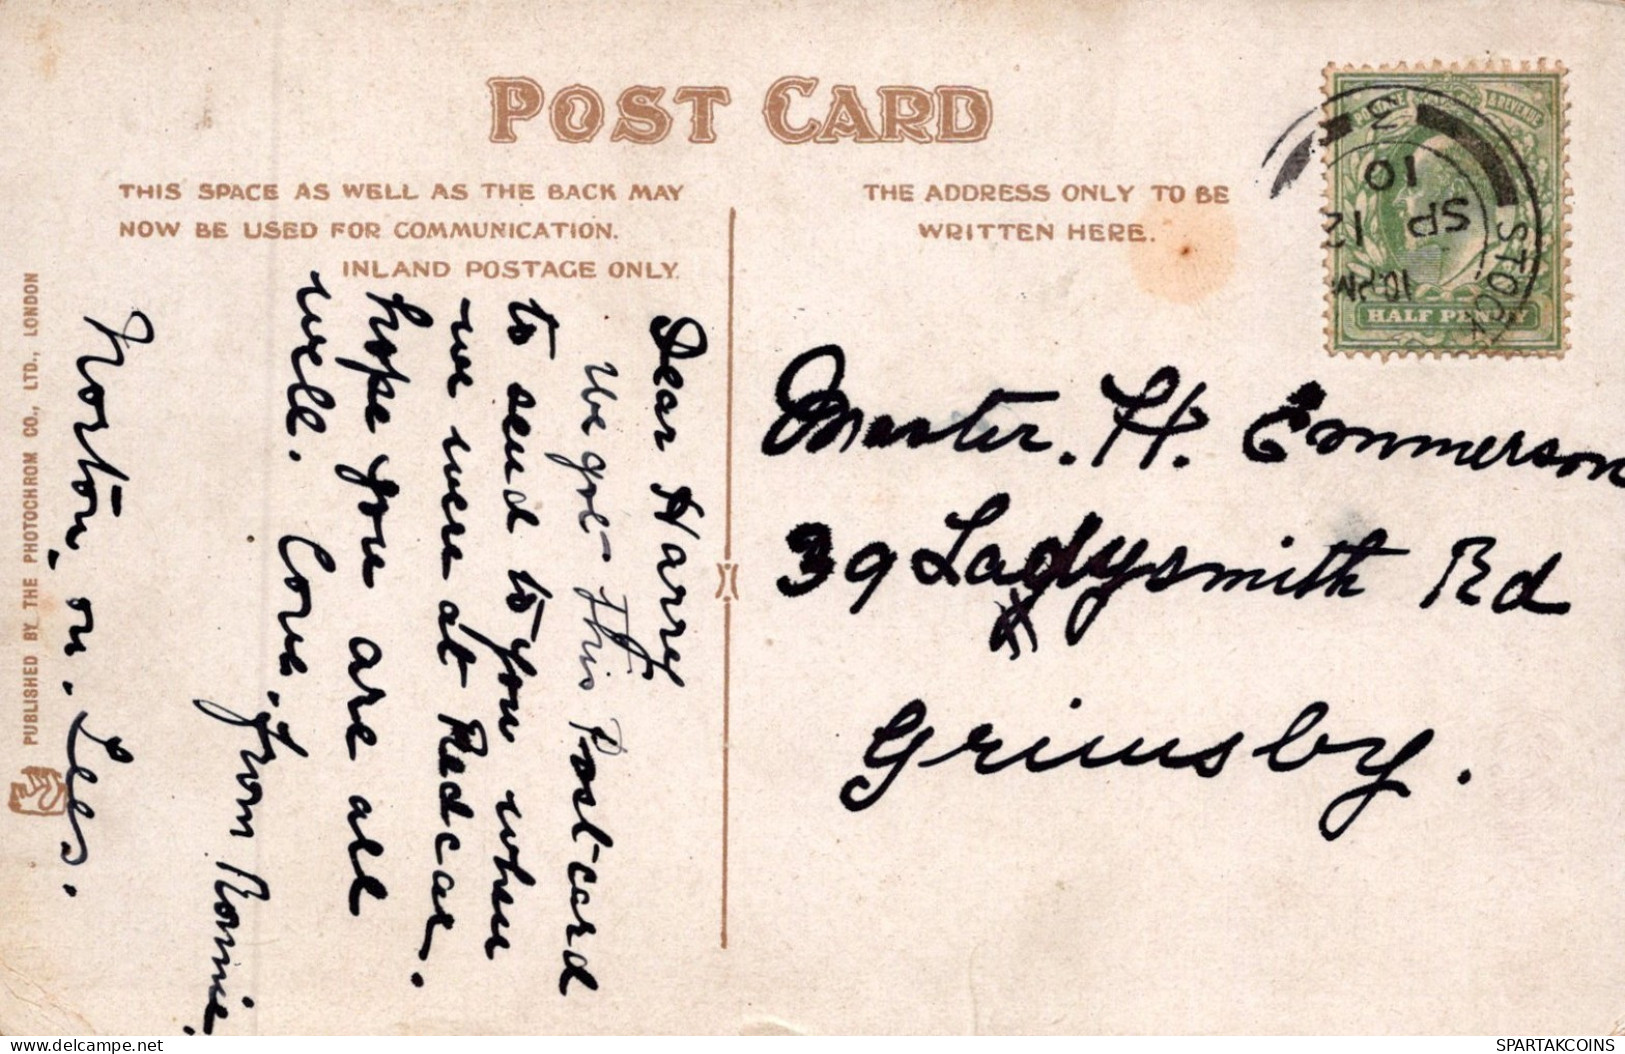 POST CARD
THIS SPACE AS WELL AS THE BACK MAY
NOW BE USED FOR COMMUNICATION.
INLAND POSTAGE ONLY.
THE ADDRESS ONLY TO BE
WRITTEN HERE.
POSTAGE & REVENUE
HALF PENNY
STOCK
10 PM
SP 12
10
3
Dear Harry
We got This Post-card
to send to you when
we were at Redcar.
hope you are all
well. Love.
from Ronnie.
Norton, on. Tees.
Master. H. Emmerson
39 Ladysmith Rd
Grimsby.
PUBLISHED BY THE PHOTOCHROM CO., LTD., LONDON
SPARTAKCOINS